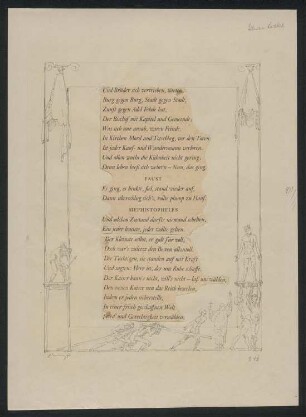 Und Brüder sich vertrieben, töteten,
Burg gegen Burg, Stadt gegen Stadt,
Zunft gegen Adel Fehde hat,
Der Bischof mit Kapitel und Gemeinde;
Was sich nur ansah, waren Feinde.
In Kirchen Mord und Totschlag, vor den Toren
Ist jeder Kauf- und Wandersmann verloren.
Und allen wuchs die Kühnheit nicht gering;
Denn leben hieß sich wehren – Nun, das ging.
FAUST
Es ging, es hinkte, fiel, stand wieder auf,
Dann überschlug sich's, rollte plump zu Hauf.
MEPHISTOPHELES
Und solchen Zustand durfte niemand schelten,
Ein jeder konnte, jeder wollte gelten.
Der Kleinste selbst, er galt für voll;
Doch war's zuletzt den Besten allzutoll.
Die Tüchtigen, sie standen auf mit Kraft
Und sagten: Herr ist, der uns Ruhe schafft.
Der Kaiser kann's nicht, will's nicht – laßt uns wählen,
Den neuen Kaiser neu das Reich beseelen,
Indem er jeden sicherstellt,
In einer frisch geschaffnen Welt
Fried' und Gerechtigkeit vermählen.